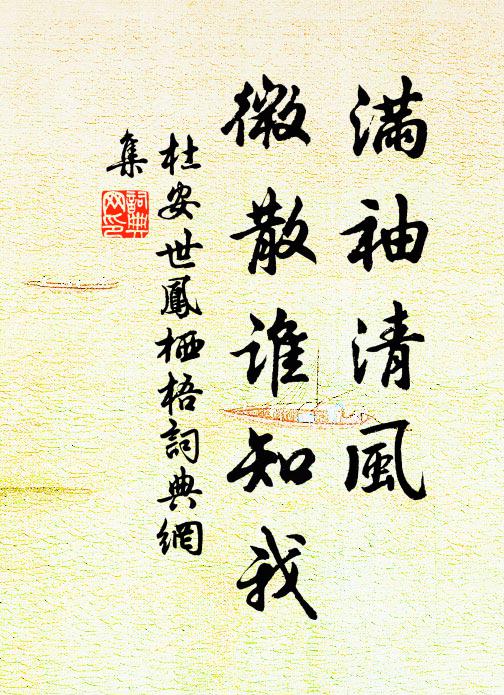 滿袖清風
微散誰知我
杜安世鳳栖梧詞典網
集
詞典
网印